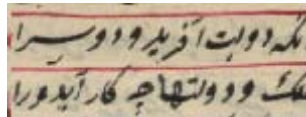 آنکه دولت آفرید و دو سرا
ملک و دولتها چه کار آید ورا